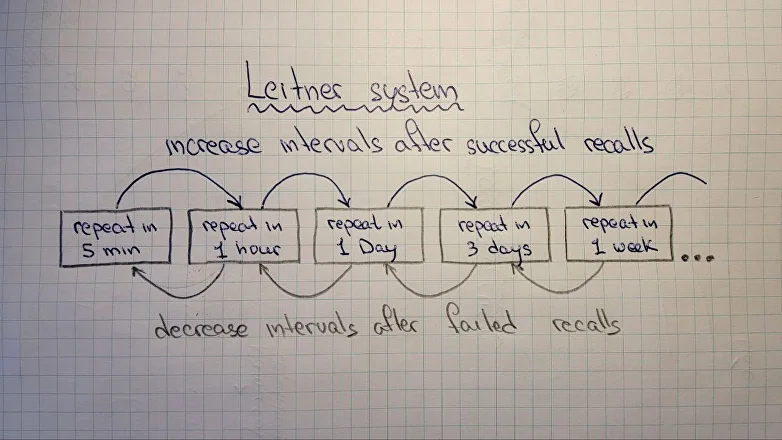 Leitner system
increase intervals after successful recalls
repeat in
5 min
repeat in
1 hour
repeat in
1 Day
repeat in
3 days
repeat in
1 week
...
decrease intervals after failed recalls